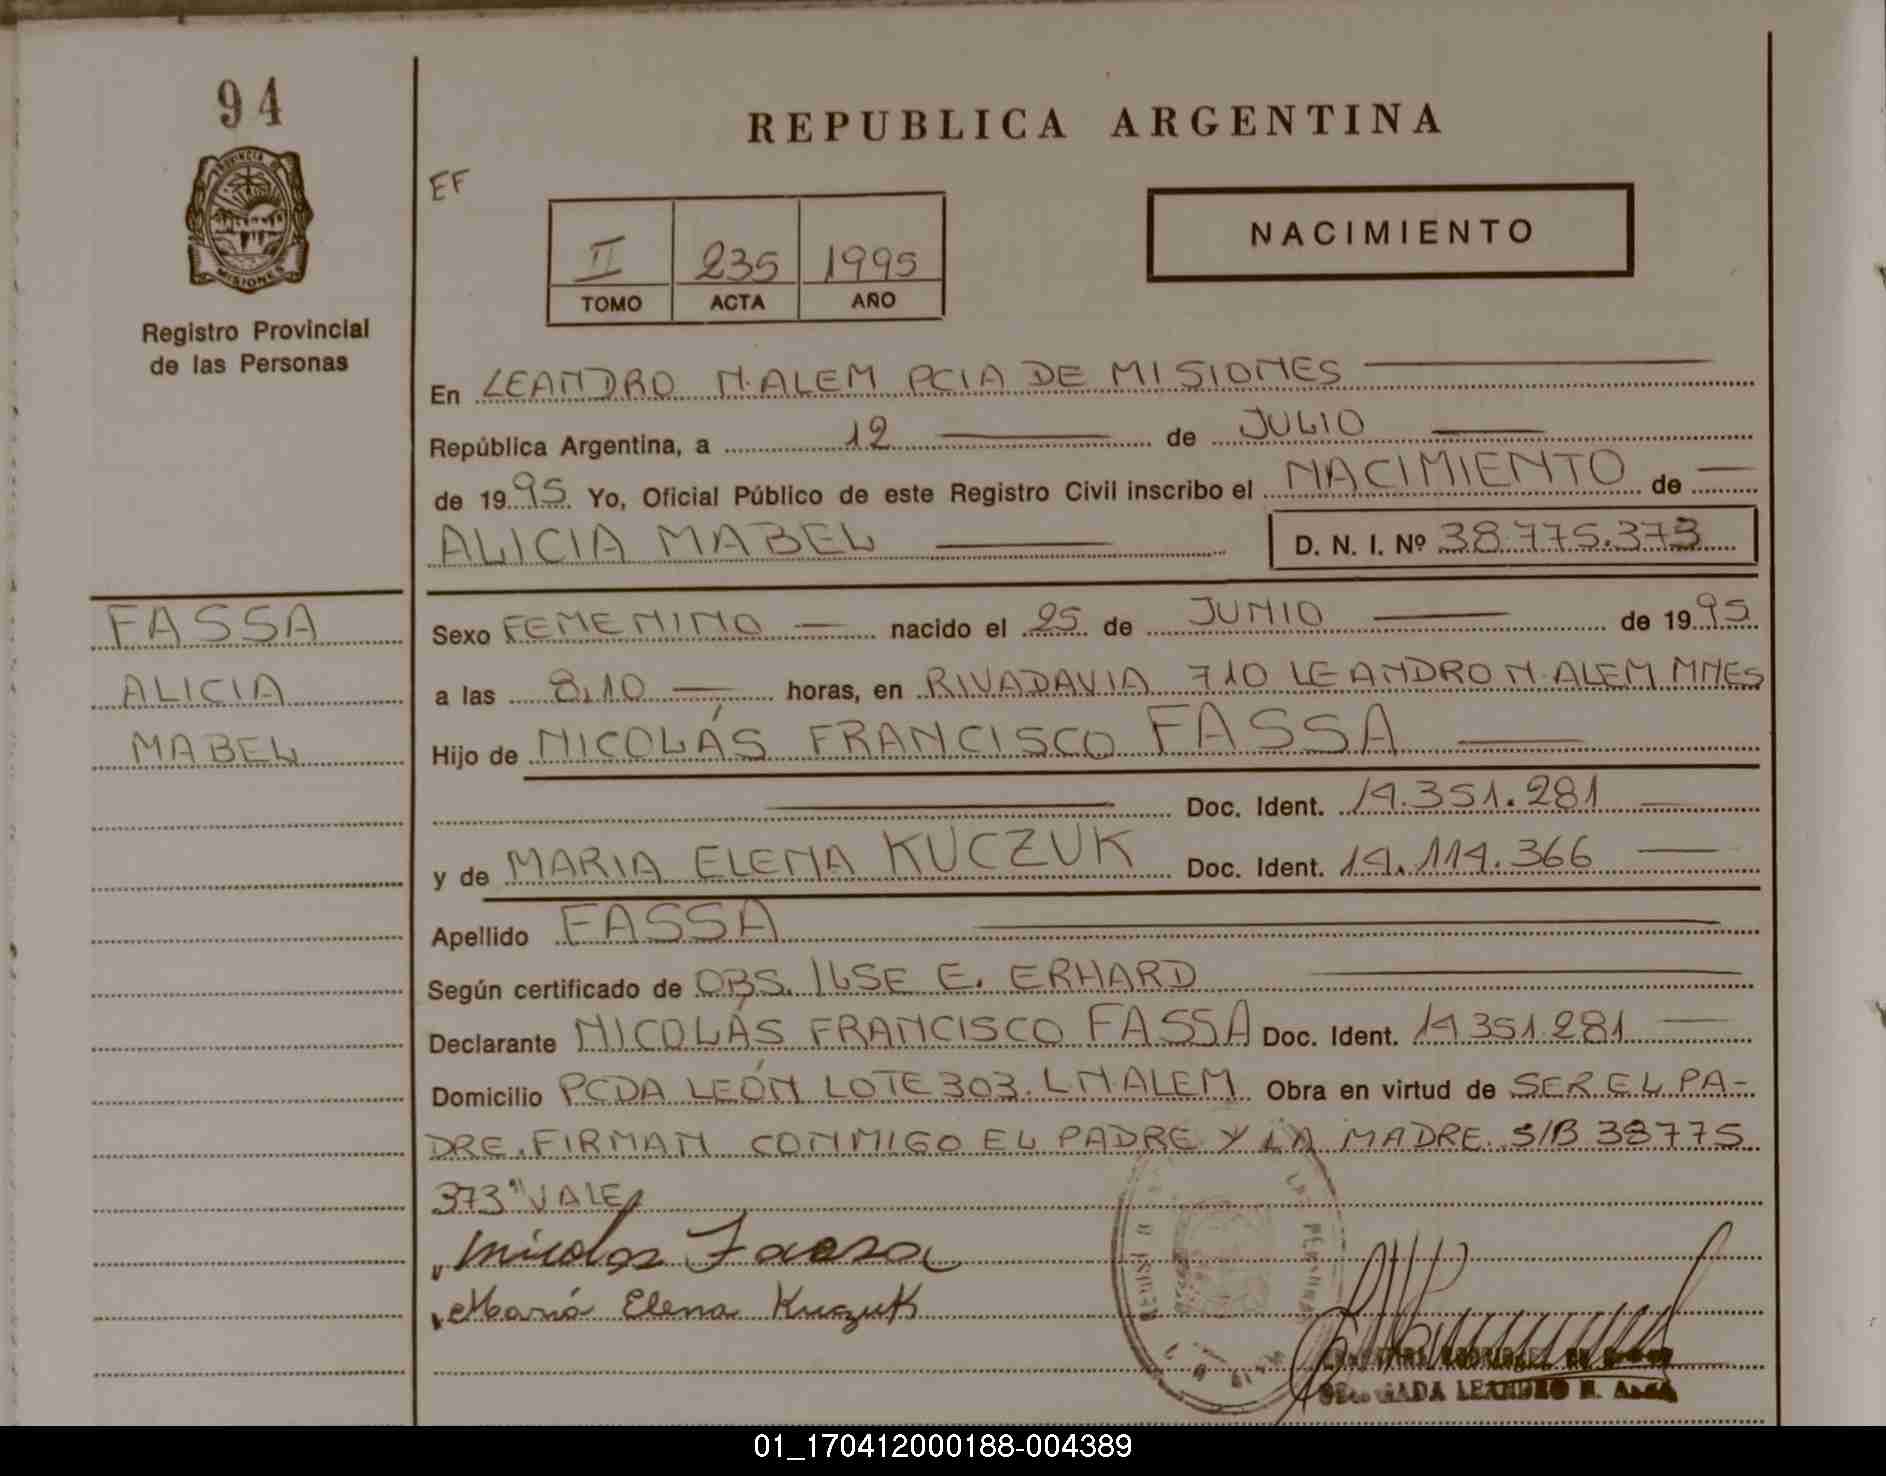 94
PROVINCIA DE
MISIONES
Registro Provincial
de las Personas
FASSA
ALICIA
MABEL
REPUBLICA ARGENTINA
EF
II 235 1995
TOMO ACTA AÑO
NACIMIENTO
En LEANDRO N. ALEM PCIA DE MISIONES
República Argentina, a 12 de JULIO
de 1995 Yo, Oficial Público de este Registro Civil inscribo el NACIMIENTO de
ALICIA MABEL D. N. I. Nº 38.775.373
Sexo FEMENINO nacido el 25 de JUNIO de 1995
a las 8,10 horas, en RIVADAVIA 710 LEANDRO N. ALEM MNES
Hijo de NICOLÁS FRANCISCO FASSA
Doc. Ident. 14.351.281
y de MARIA ELENA KUCZUK Doc. Ident. 14.114.366
Apellido FASSA
Según certificado de OBS. ILSE E. ERHARD
Declarante NICOLÁS FRANCISCO FASSA Doc. Ident. 14351.281
Domicilio PCDA LEÓN LOTE 303. L N. ALEM Obra en virtud de SER EL PA-
DRE. FIRMAN CONMIGO EL PADRE Y LA MADRE. S/B 38775
373 "VALE
Nicolas Fassa
Maria Elena Kuczuk
RODRIGUEZ DE
LEANDRO N. ALEM
01_170412000188-004389